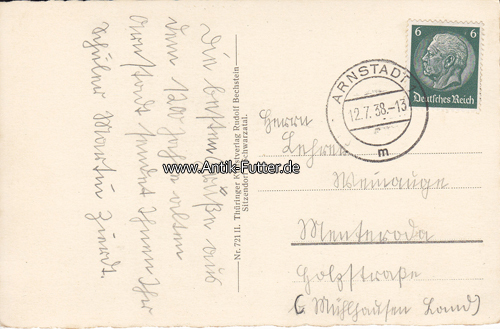 Die besten Grüße aus
dem 1200 Jahre alten
Arnstadt sendet Ihnen Ihr
Schüler Martin Zierdt.
Nr. 721 II. Thüringer Kunstverlag Rudolf Bechstein
Sitzendorf-Schwarzatal.
www.Antik-Futter.de
6 6
Deutsches Reich
ARNSTADT
12.7.38.-13
m
Herrn
Lehrer
Weinauge
Menteroda
Holzstraße
(b. Mühlhausen Land)